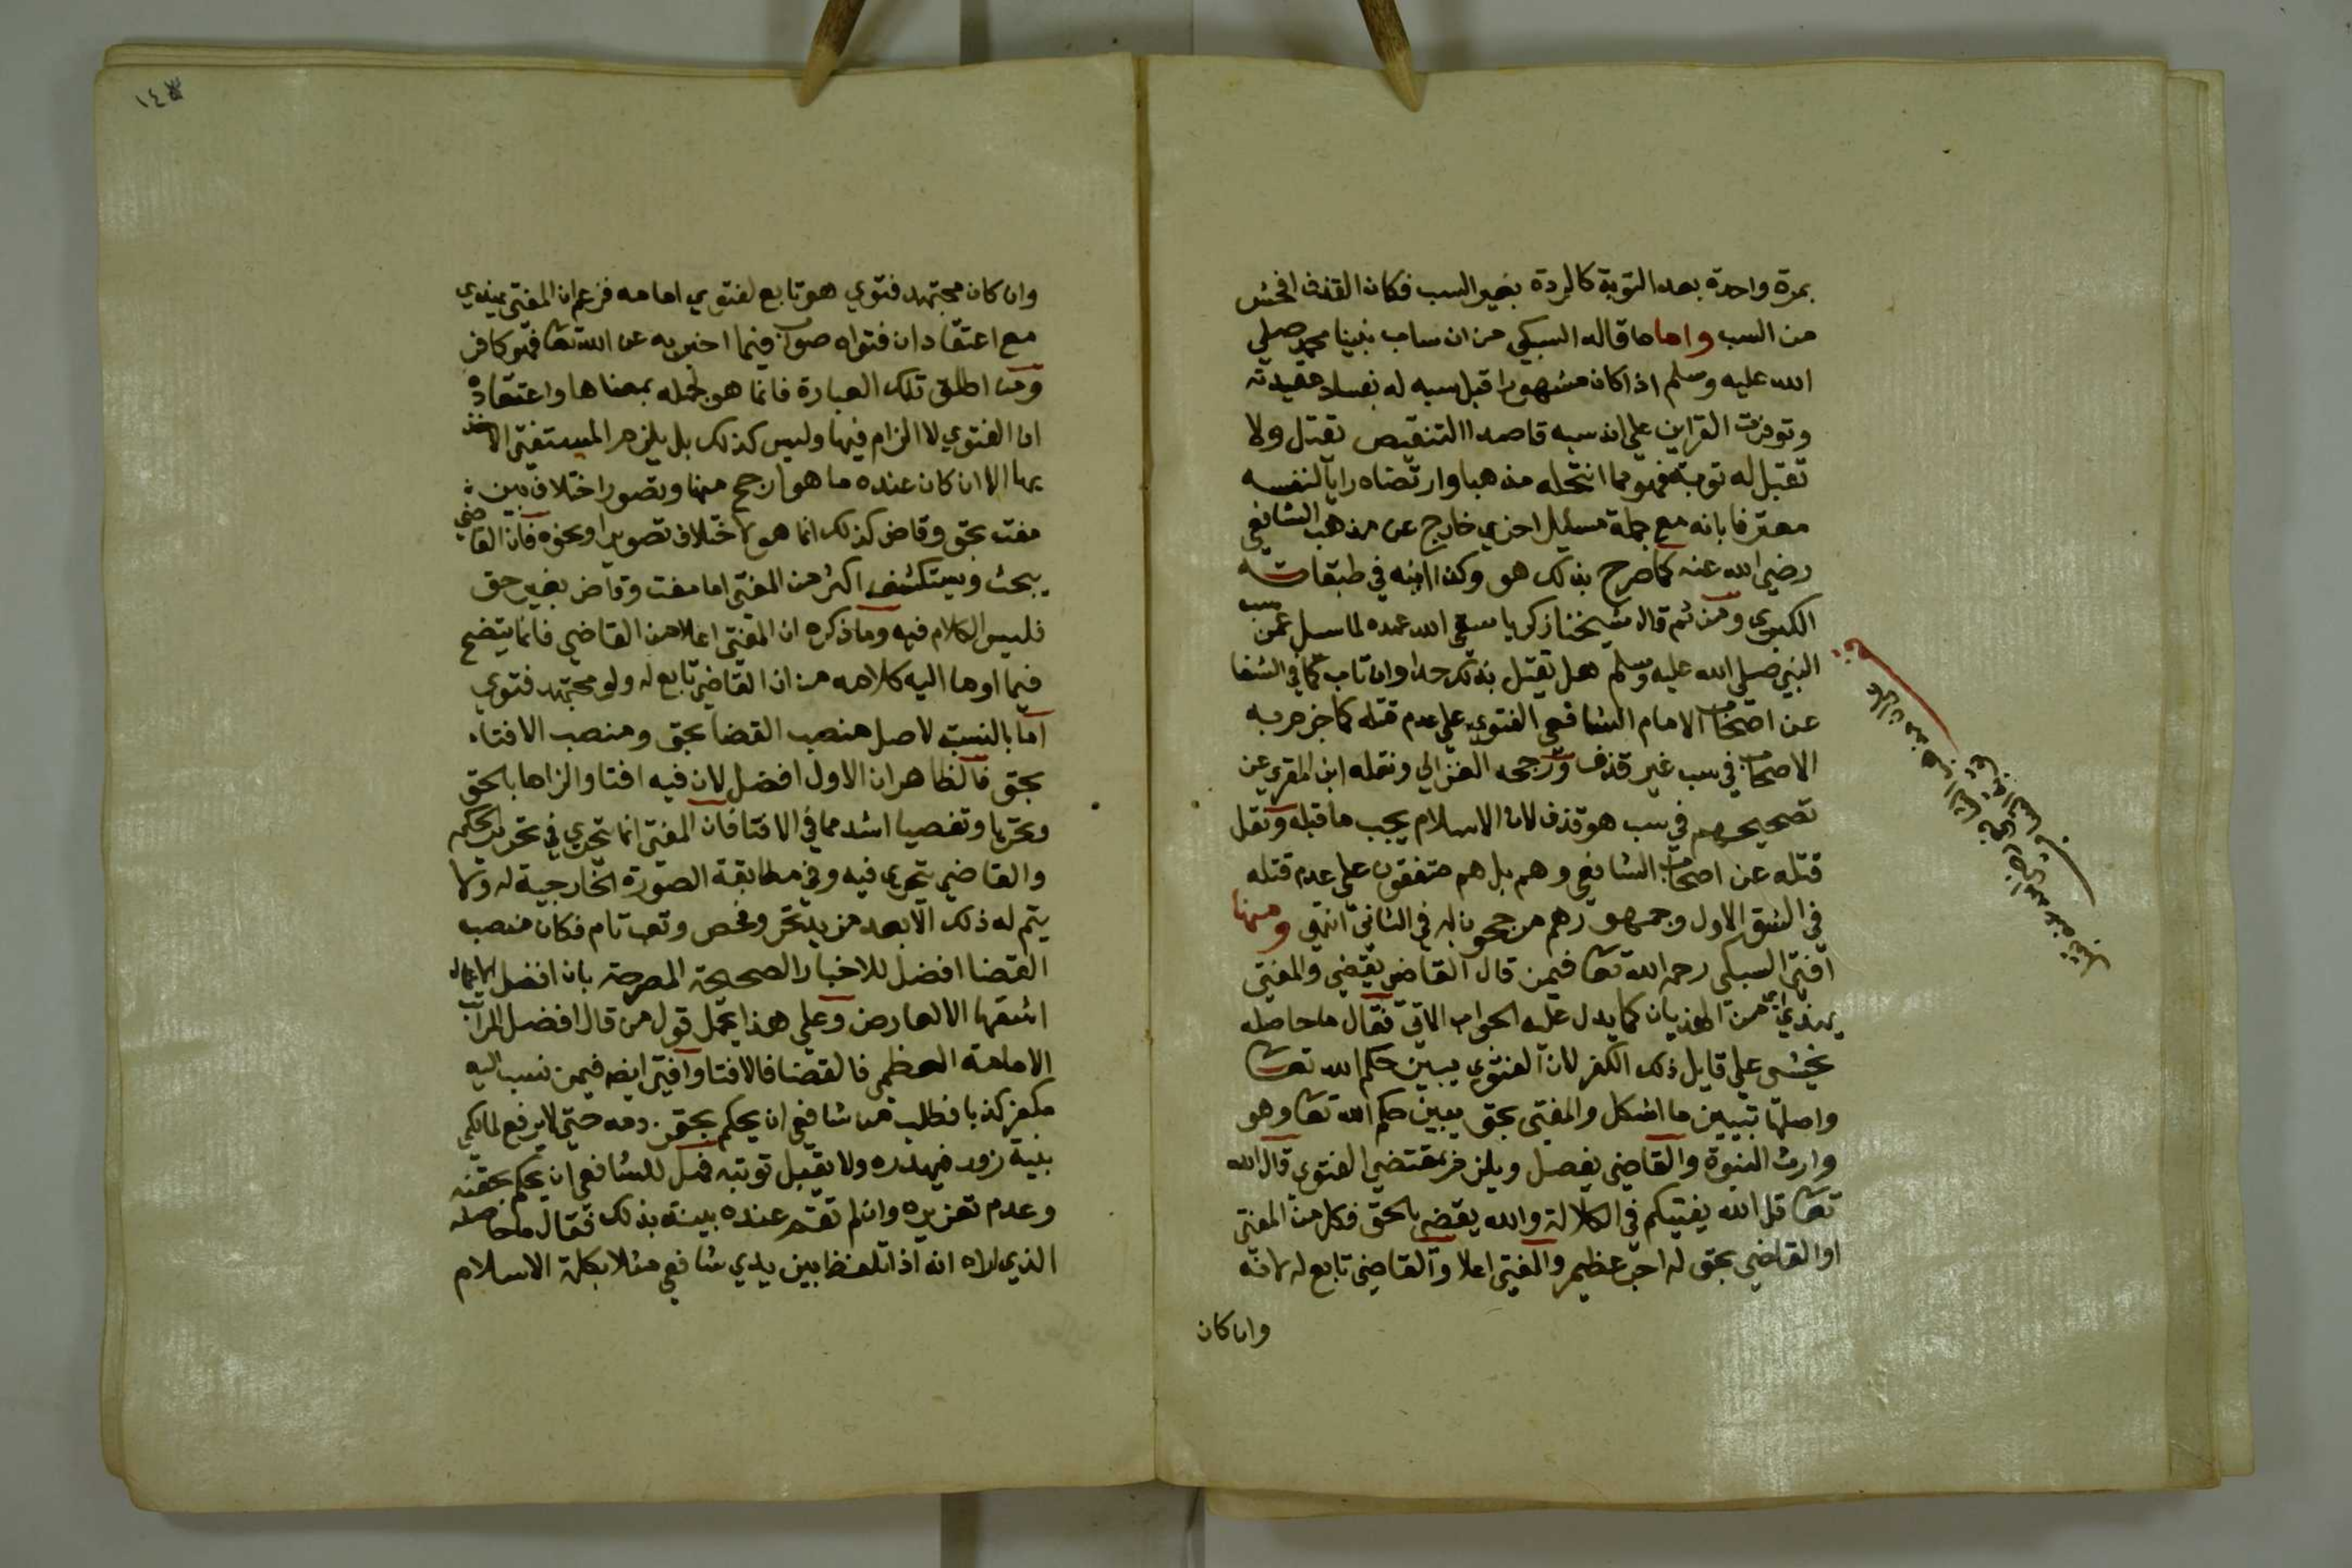 بمرة واحدة بعد التوبة كالردة بغير السب فكان القذف افحش
من السب واما ما قاله السبكي من ان ساب نبينا محمد صلي
الله عليه وسلم اذا كان مشهورا قبل سبه له بفساد عقيدته
وتوفرت القراين علي انه سبه قاصدا التنقيص يقتل ولا
تقبل له توبة فهو مما انتحله مذهبا وارتضاه رايا لنفسه
معترفا بانه مع جملة مسايل اخري خارج عن مذهب الشافعي
رضي الله عنه كما صرح بذلك هو وكذا ابنه في طبقاته
الكبري ومن ثم قال شيخنا زكريا سقي الله عهده لما سيل عمن سب
النبي صلي الله عليه وسلم هل يقتل بذلك حدا وان تاب كما في الشفا
عن اصحاب الامام الشافعي الفتوي علي عدم قتله كما جزم به
الاصحاب في سب غير قذف ورجحه الغزالي ونقله ابن المقري عن
تصحيحهم في سب هو قذف لان الاسلام يجب ما قبله ونقل
قتله عن اصحاب الشافعي وهم بل هم متفقون علي عدم قتله
في الشق الاول وجمهورهم مرجحون له في الثاني انتهي ومنها
افتي السبكي رحمه الله تعا فيمن قال القاضي يقضي والمفتي
يهذي اي من الهذيان كما يدل عليه الجواب الاتي فقال ما حاصله
يخشي علي قايل ذلك الكفر لان الفتوي يبين حكم الله تعا
واصلها تبيين ما اشكل والمفتي بحق يبين حكم الله تعا وهو
وارث النبوة والقاضي يفصل ويلزم بمقتضي الفتوي قال الله
تعا قل الله يفتيكم في الكلالة والله يقضي بالحق فكل من المفتي
او القاضي بحق له اجر عظيم والمفتي اعلا والقاضي تابع له لانه
وان كان
وان كان مجتهد فتوي هو تابع لفتوي امامه فزعم ان المفتي يهذي
مع اعتقاد ان فتواه صواب فيما اخبر به عن الله تعا فهو كافر
ومن اطلق تلك العبارة فانما هو لجهله بمعناها واعتقاده
ان الفتوي لا الزام فيها وليس كذلك بل يلزم المستفتي الاخذ
بها الا ان كان عنده ما هو ارجح منها وتصور اختلاف بين
مفت بحق وقاض كذلك انما هو لاختلاف تصوير او نحوه فان القاضي
يبحث ويستكشف اكثر من المفتي اما مفت وقاض بغير حق
فليس الكلام فيه وما ذكره ان المفتي اعلا من القاضي فانما يتضح
فيما اوما اليه كلامه من ان القاضي تابع له ولو مجتهد فتوي
اما بالنسبة لاصل منصب القضا بحق ومنصب الافتاء
بحق فالظاهر ان الاول افضل لان فيه افتا والزاما بالحق
وتحريا وتفصيا اشد مما في الافتا فان المفتي انما يتحري في تحرير الحكم
والقاضي يتحري فيه وفي مطابقة الصورة الخارجية له ولا
يتم له ذلك الا بعد مزيد تحر وفحص وتعب تام فكان منصب
القضا افضل للاخبار الصحيحة المصرحة بان افضل الاعمال
اشقها الا لعارض وعلي هذا يحمل قول من قال افضل المراتب
الامامة العظمي فالقضا فالافتا وافتي ايضه فيمن نسب اليه
مكفر كذبا فطلب من شافعي ان يحكم بحقن دمه حتي لا يرفع لمالكي
ببينة زور فيهدره ولا يقبل توبته فهل للشافعي ان يحكم بحقنه
وعدم تعزيره وان لم تقم عنده بينة بذلك فقال ما حاصله
الذي اراه انه اذا تلفظ بين يدي شافعي مثلا بكلمة الاسلام